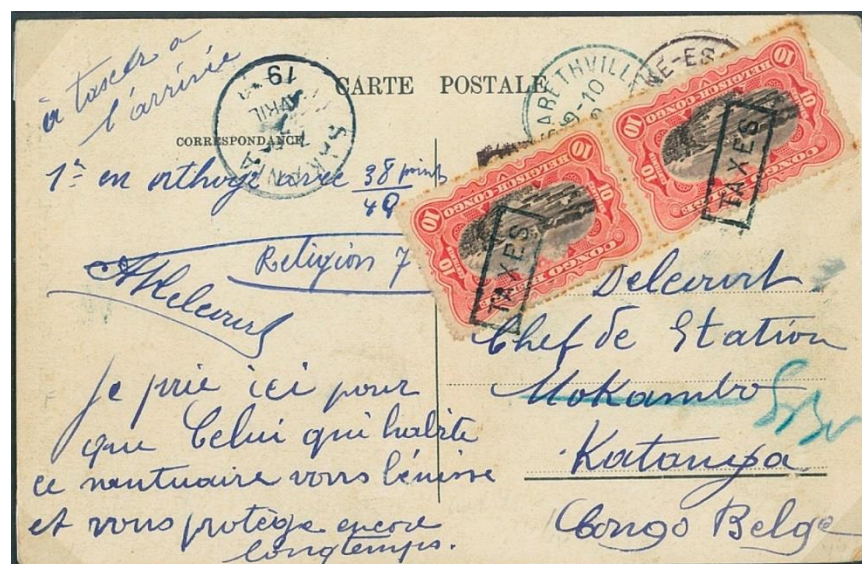 à taxer a
l'arrivée
CARTE POSTALE
CORRESPONDANCE
SAKANIA
AVRIL
19
ABETHVILLE
9-10
NE-ES
CONGO BELGE
BELGISCH-CONGO
10
10
10
10
TAXES
CONGO BELGE
BELGISCH-CONGO
10
10
10
10
TAXES
1er en orthogr avec 38 points
48
Religion 7
ADelcourt
Je prie ici pour
que Celui qui habite
ce santuaire vous bénisse
et vous protège encore
longtemps.
Delcourt
Chef de Station
Mokambo
Katanga
Congo Belge